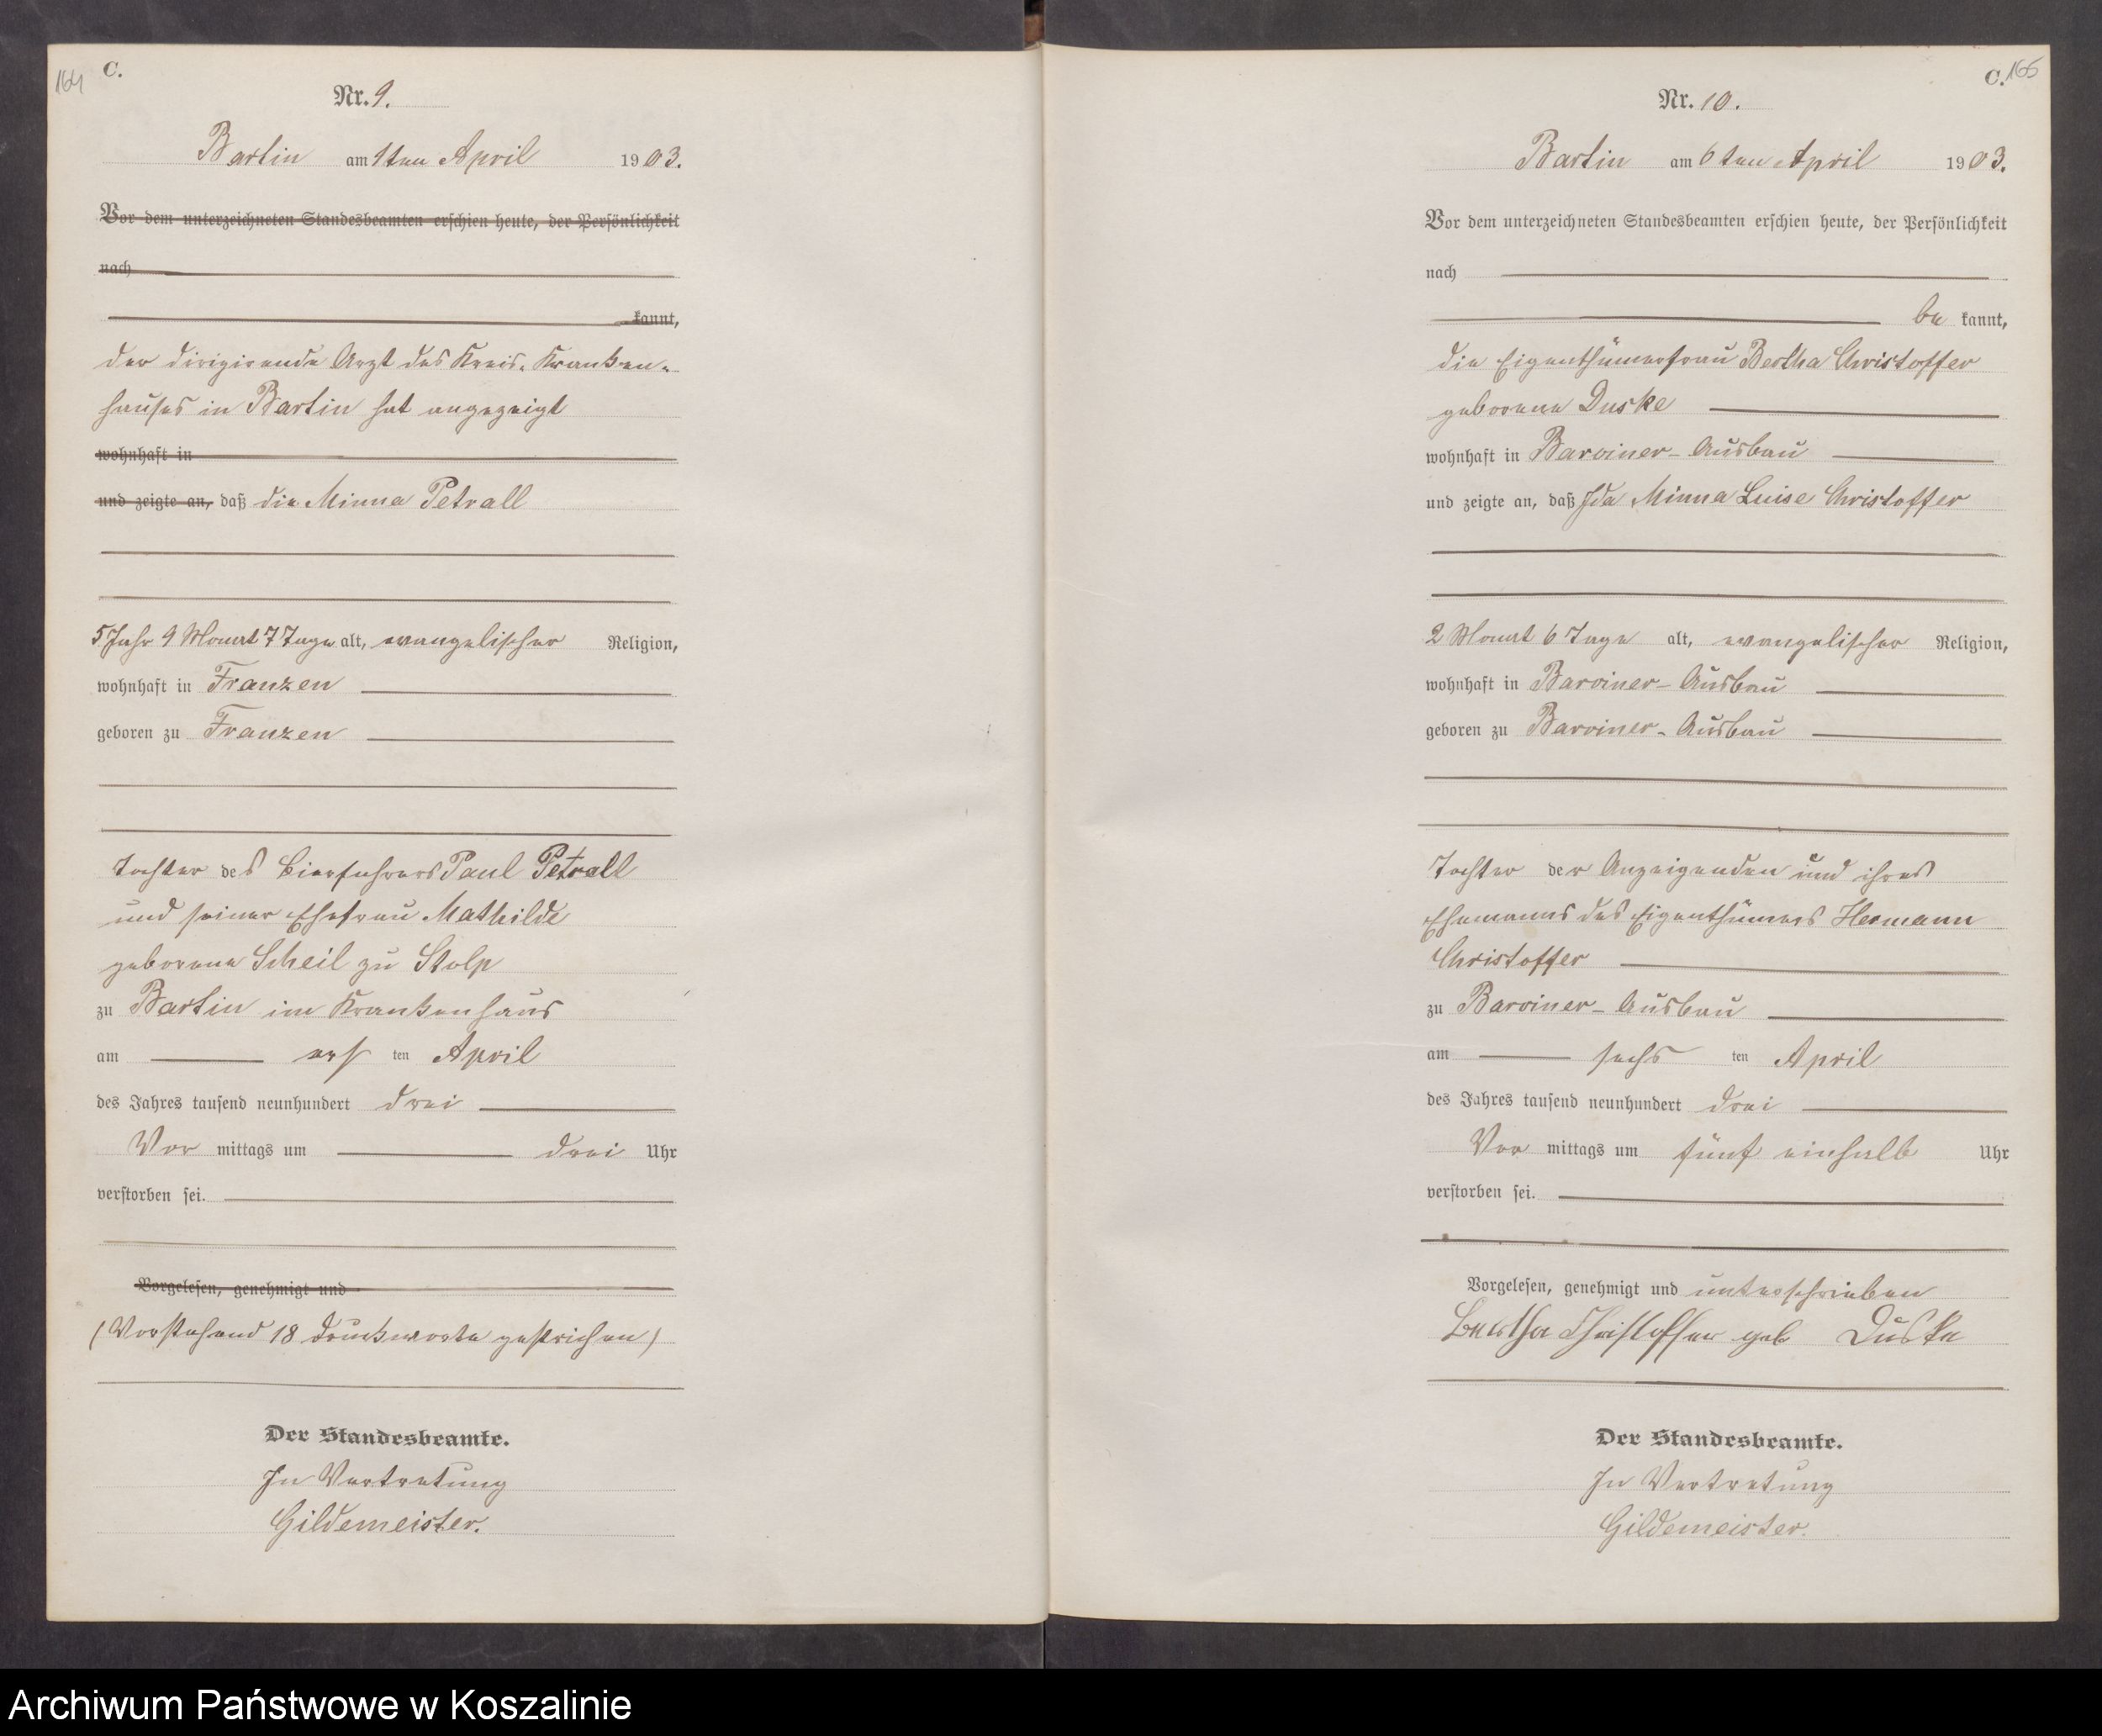 164
C.
Nr. 9.
Bartin am 1ten April 1903.
Vor dem unterzeichneten Standesbeamten erschien heute, der Persönlichkeit
nach
kannt,
der dirigirende Arzt des Kreis-Kranken-
hauses in Bartin hat angezeigt
wohnhaft in
und zeigte an, daß die Minna Petrall
5 Jahr 9 Monat 7 Tage alt, evangelischer Religion,
wohnhaft in Franzen
geboren zu Franzen
Tochter des Bierfahrers Paul Petrall
und seiner Ehefrau Mathilde
geborene Scheil zu Stolp
zu Bartin im Krankenhaus
am ers ten April
des Jahres tausend neunhundert drei
Vor mittags um drei Uhr
verstorben sei.
Vorgelesen, genehmigt und
(Vorstehend 18 Druckworte gestrichen)
Der Standesbeamte.
In Vertretung
Gildemeister.
C. 165
Nr. 10.
Bartin am 6ten April 1903.
Vor dem unterzeichneten Standesbeamten erschien heute, der Persönlichkeit
nach
be kannt,
die Eigenthümerfrau Bertha Christoffer
geborene Duske
wohnhaft in Barviner-Ausbau
und zeigte an, daß Ida Minna Luise Christoffer
2 Monat 6 Tage alt, evangelischer Religion,
wohnhaft in Barviner-Ausbau
geboren zu Barviner-Ausbau
Tochter der Anzeigenden und ihres
Ehemanns des Eigenthümers Hermann
Christoffer
zu Barviner-Ausbau
am sechs ten April
des Jahres tausend neunhundert drei
Vor mittags um fünf einhalb Uhr
verstorben sei.
Vorgelesen, genehmigt und unterschrieben
Bertha Christoffer geb Duske
Der Standesbeamte.
In Vertretung
Gildemeister.
Archiwum Państwowe w Koszalinie